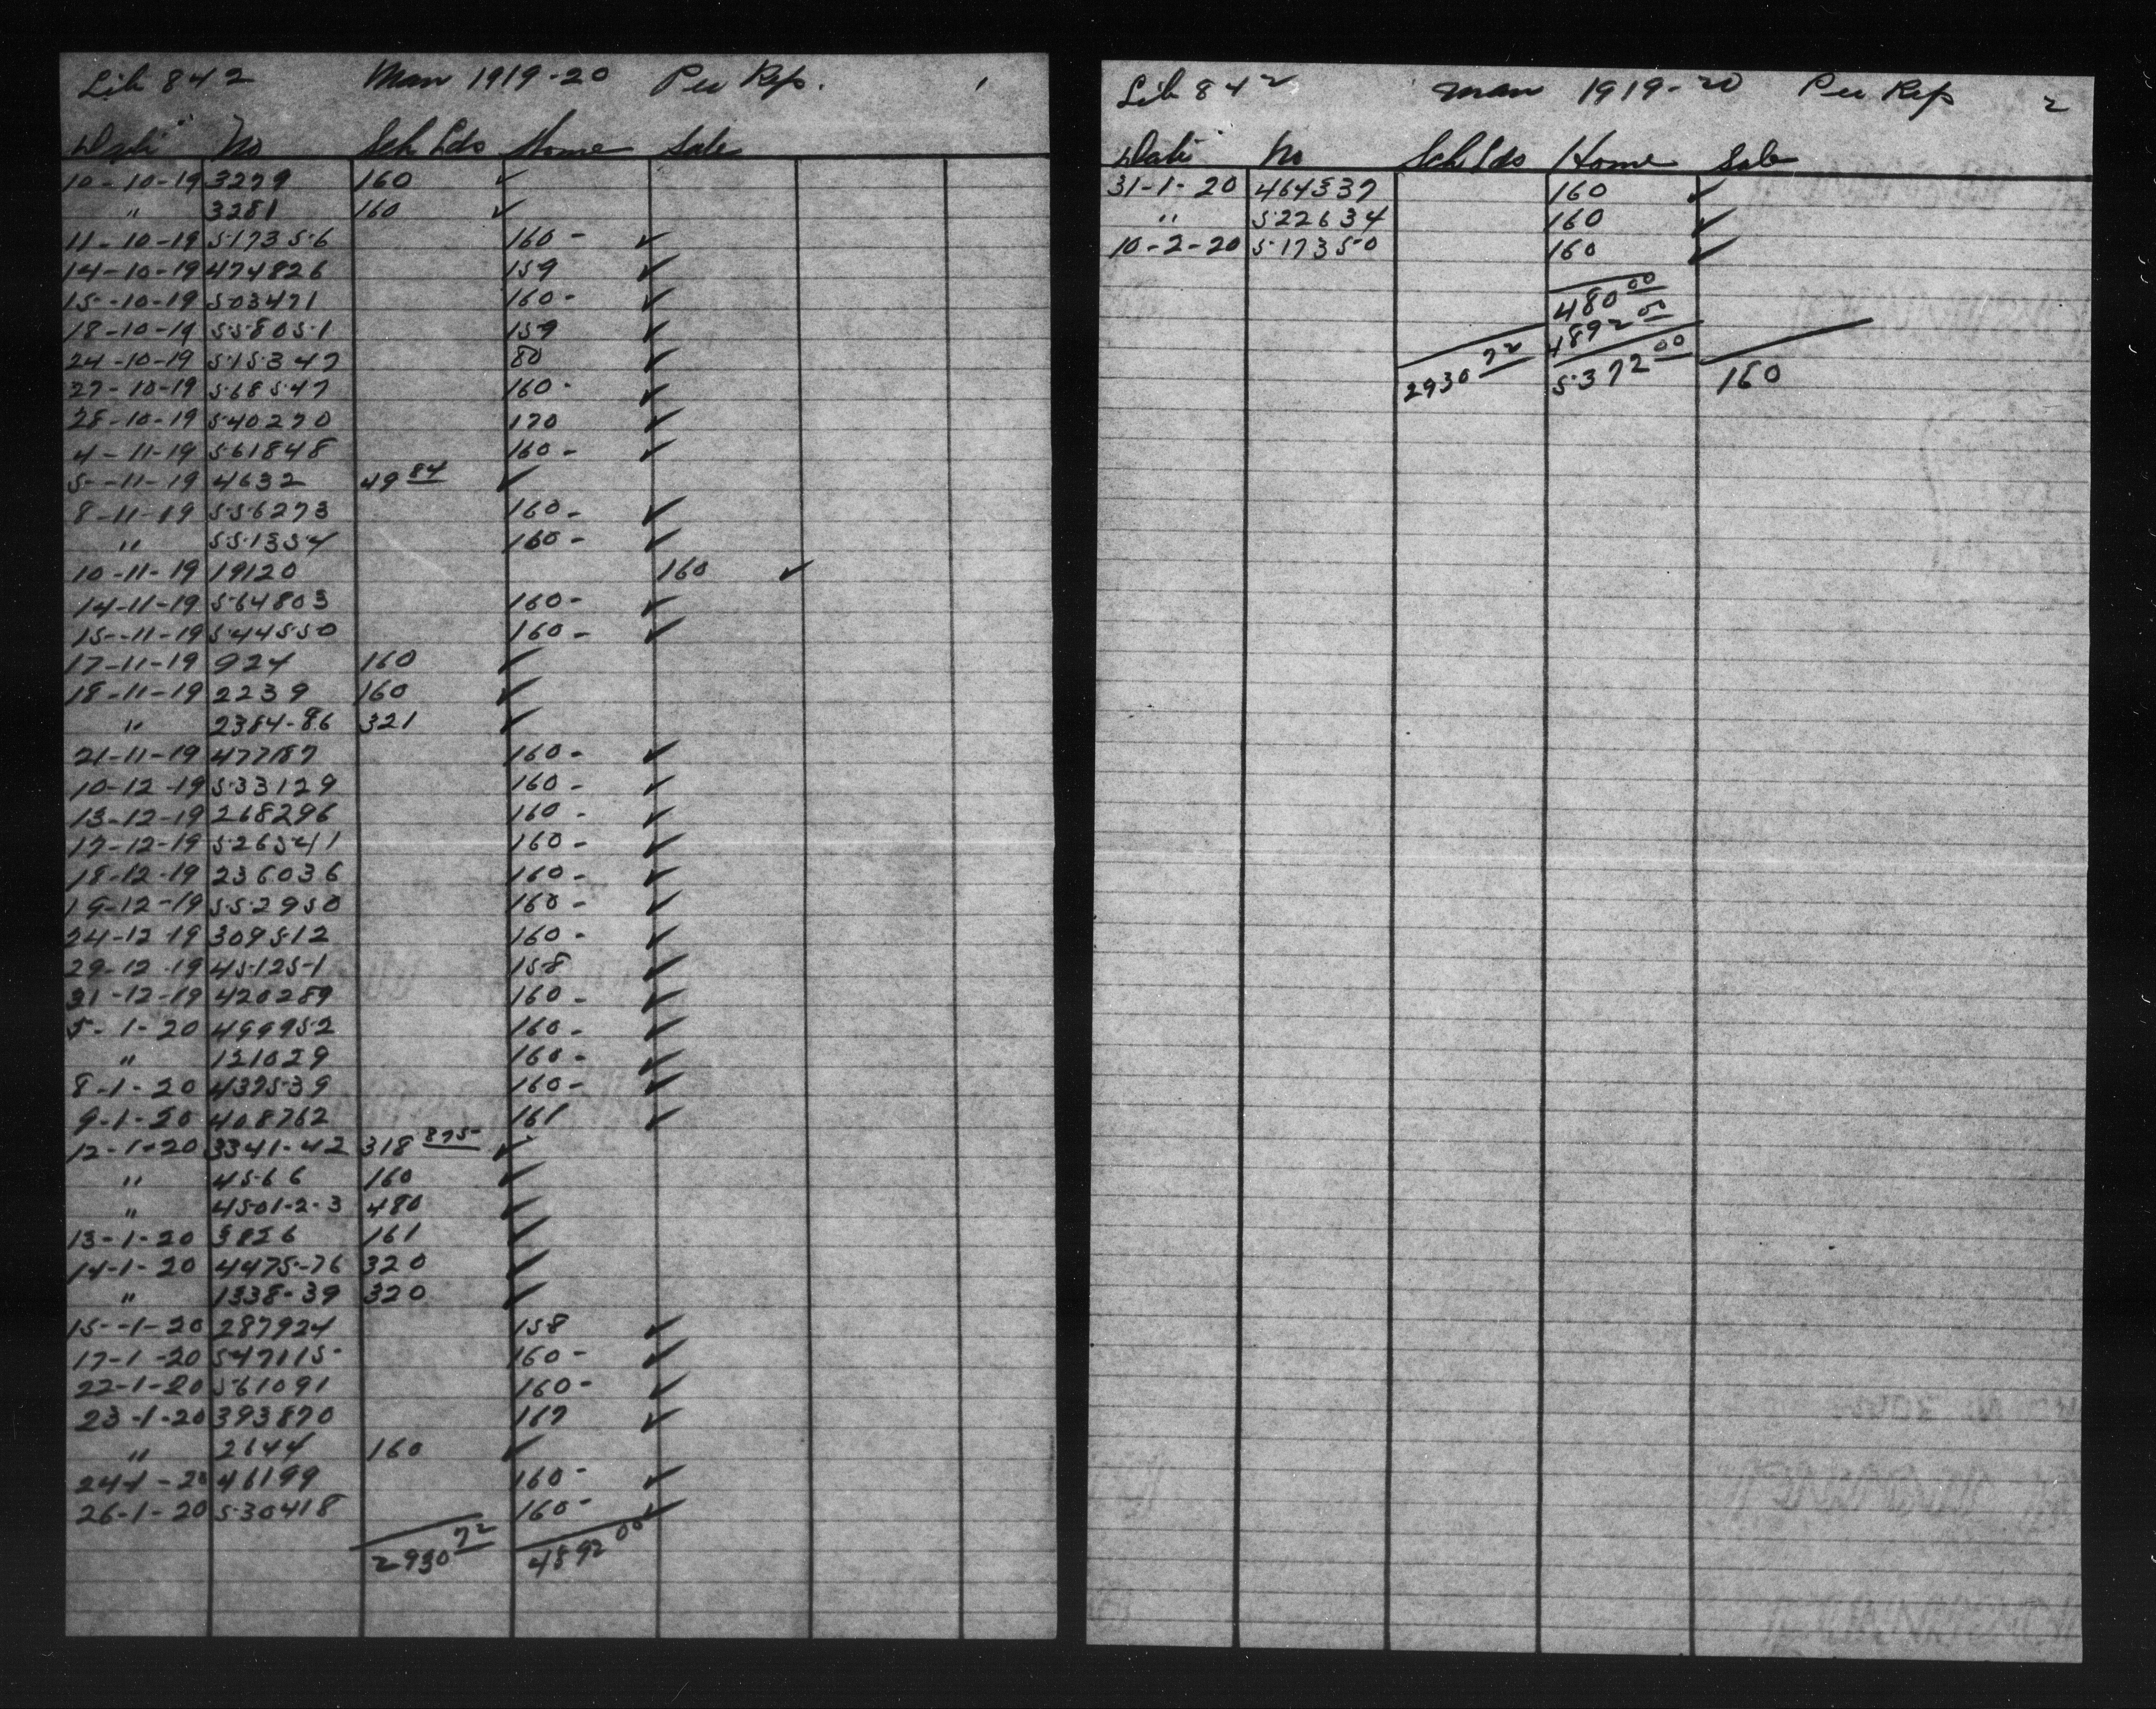 Lib 842 Man 1919-20 Per Rep. 1
Date No Sch Lds Home Sale
10-10-19 3279 160 ✓
" 3281 160 ✓
11-10-19 517356 160- ✓
14-10-19 474826 159 ✓
15-10-19 503471 160- ✓
18-10-19 558051 159 ✓
24-10-19 515347 80 ✓
27-10-19 568547 160- ✓
28-10-19 540270 170 ✓
4-11-19 561848 160- ✓
5-11-19 4632 49 84 ✓
8-11-19 556273 160- ✓
" 551354 160- ✓
10-11-19 19120 160 ✓
14-11-19 564803 160- ✓
15-11-19 544550 160- ✓
17-11-19 924 160 ✓
18-11-19 2239 160 ✓
" 2384-86 321 ✓
21-11-19 477187 160- ✓
10-12-19 533129 160- ✓
13-12-19 268296 160- ✓
17-12-19 526541 160- ✓
18-12-19 236036 160- ✓
19-12-19 552950 160- ✓
24-12-19 309512 160- ✓
29-12-19 451251 158 ✓
31-12-19 420289 160- ✓
5-1-20 499952 160- ✓
" 131029 160- ✓
8-1-20 437539 160- ✓
9-1-20 408762 161 ✓
12-1-20 3341-42 318 875 ✓
" 4566 160 ✓
" 4501-2-3 480 ✓
13-1-20 3826 161 ✓
14-1-20 4475-76 320 ✓
" 1338-39 320 ✓
15-1-20 287924 158 ✓
17-1-20 547115 160- ✓
22-1-20 561091 160- ✓
23-1-20 393870 167 ✓
" 2644 160 ✓
24-1-20 46199 160- ✓
26-1-20 530418 160- ✓
2930 72 4892 00
Lib 842 Man 1919-20 Per Rep 2
Date No Sch Lds Home Sale
31-1-20 464537 160 ✓
" 522634 160 ✓
10-2-20 517350 160 ✓
480 00
4892
2930 72 5372 00 160